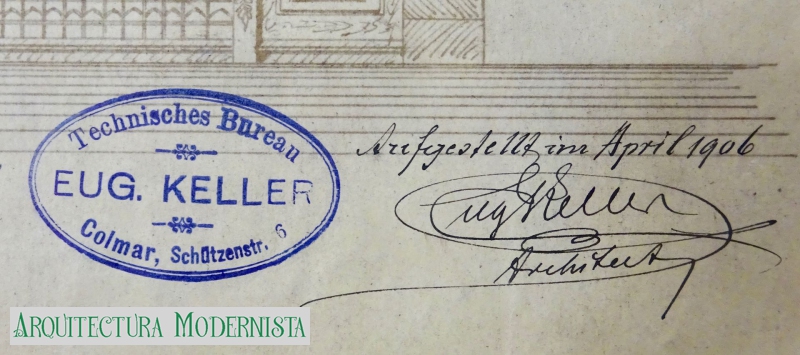 Technisches Bureau
EUG. KELLER
Colmar, Schützenstr. 6
Aufgestellt im April 1906
Eug Keller
Architect
ARQUITECTURA MODERNISTA